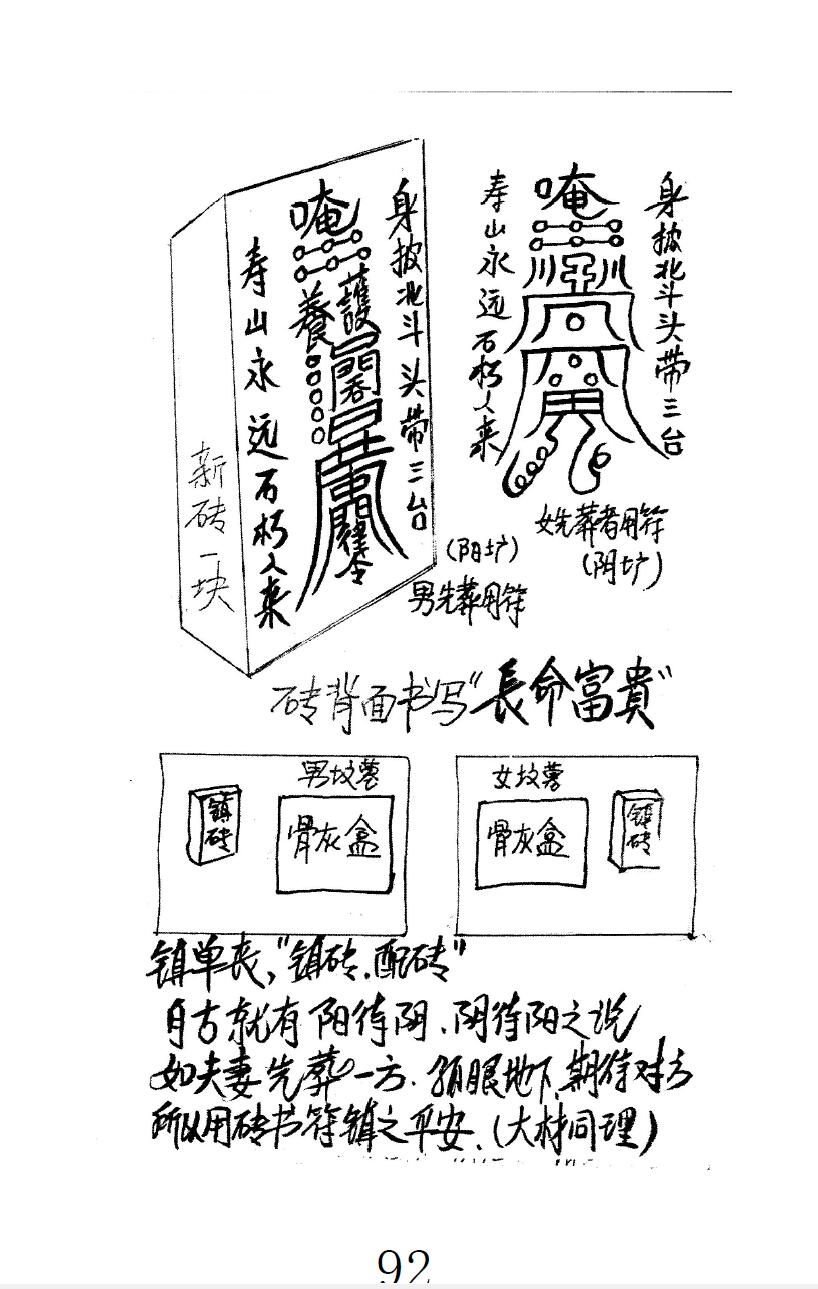 身披北斗头带三台
唵
護
養
寿山永远石朽人来
新砖一块
(阳圹)
男先葬用符
身披北斗头带三台
唵
寿山永远石朽人来
女先葬者用符
(阴圹)
砖背面书写"長命富貴"
男坟墓
镇砖
骨灰盒
女坟墓
骨灰盒
镇砖
镇单丧,"镇砖.配砖"
自古就有阳待阴.阴待阳之说
如夫妻先葬一方.眼地下.期待对方
所以用砖书符镇之平安.(大材同理)
92